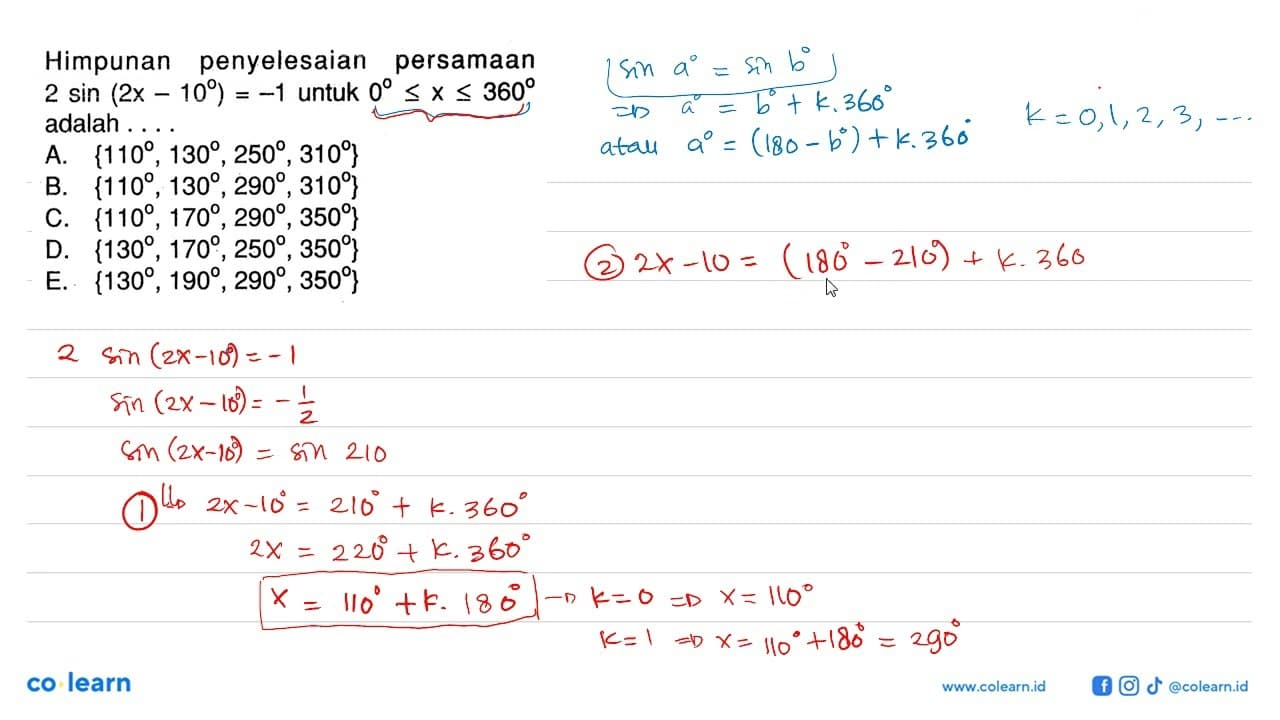 Himpunan penyelesaian persamaan
2 sin (2x – 10°) = –1 untuk 0° ≤ x ≤ 360°
adalah . . . .
A. {110°, 130°, 250°, 310°}
B. {110°, 130°, 290°, 310°}
C. {110°, 170°, 290°, 350°}
D. {130°, 170°, 250°, 350°}
E. {130°, 190°, 290°, 350°}
sin a° = sin b°
⇒ a° = b° + k.360°
atau a° = (180 - b°) + k.360°
k = 0,1,2,3, ...
② 2x - 10 = (180° - 210°) + k.360
2 sin (2x-10°) = -1
sin (2x-10°) = - 1/2
sin (2x-10°) = sin 210
① ⇒ 2x-10° = 210° + k.360°
2x = 220° + k.360°
x = 110° + k.180° → k=0 ⇒ x = 110°
k=1 ⇒ x = 110° + 180° = 290°
co learn
www.colearn.id
@colearn.id